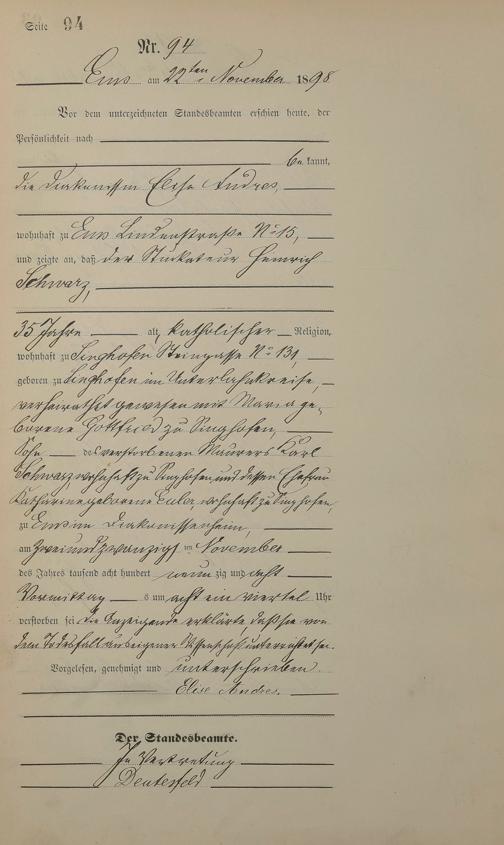 Seite 94
Nr. 94
Ems am 22ten November 1898
Vor dem unterzeichneten Standesbeamten erschien heute, der
Persönlichkeit nach
be kannt,
die Diakonissin Elise Andres,
wohnhaft zu Ems Lindenstraße No 15,
und zeigte an, daß der Stuckateur Heinrich
Schwarz,
35 Jahre alt, katholischer Religion,
wohnhaft zu Singhofen Steingasse No 131,
geboren zu Singhofen im Unterlahnkreise,
verheirathet gewesen mit Maria ge-
borene Gottfried zu Singhofen,
Sohn des verstorbenen Maurers Karl
Schwarz, wohnhaft zu Singhofen, und dessen Ehefrau
Katharine geborene wohnhaft zu Singhofen,
zu Ems im Diakonissenheim,
am zweiundzwanzigsten November
des Jahres tausend acht hundert neun zig und acht
Vormittags um acht ein viertel Uhr
verstorben sei, die Anzeigende erklärte, daß sie von
dem Todesfall aus eigener Wissenschaft unterrichtet sei.
Vorgelesen, genehmigt und unterschrieben.
Elise Andres.
Der Standesbeamte.
In Vertretung